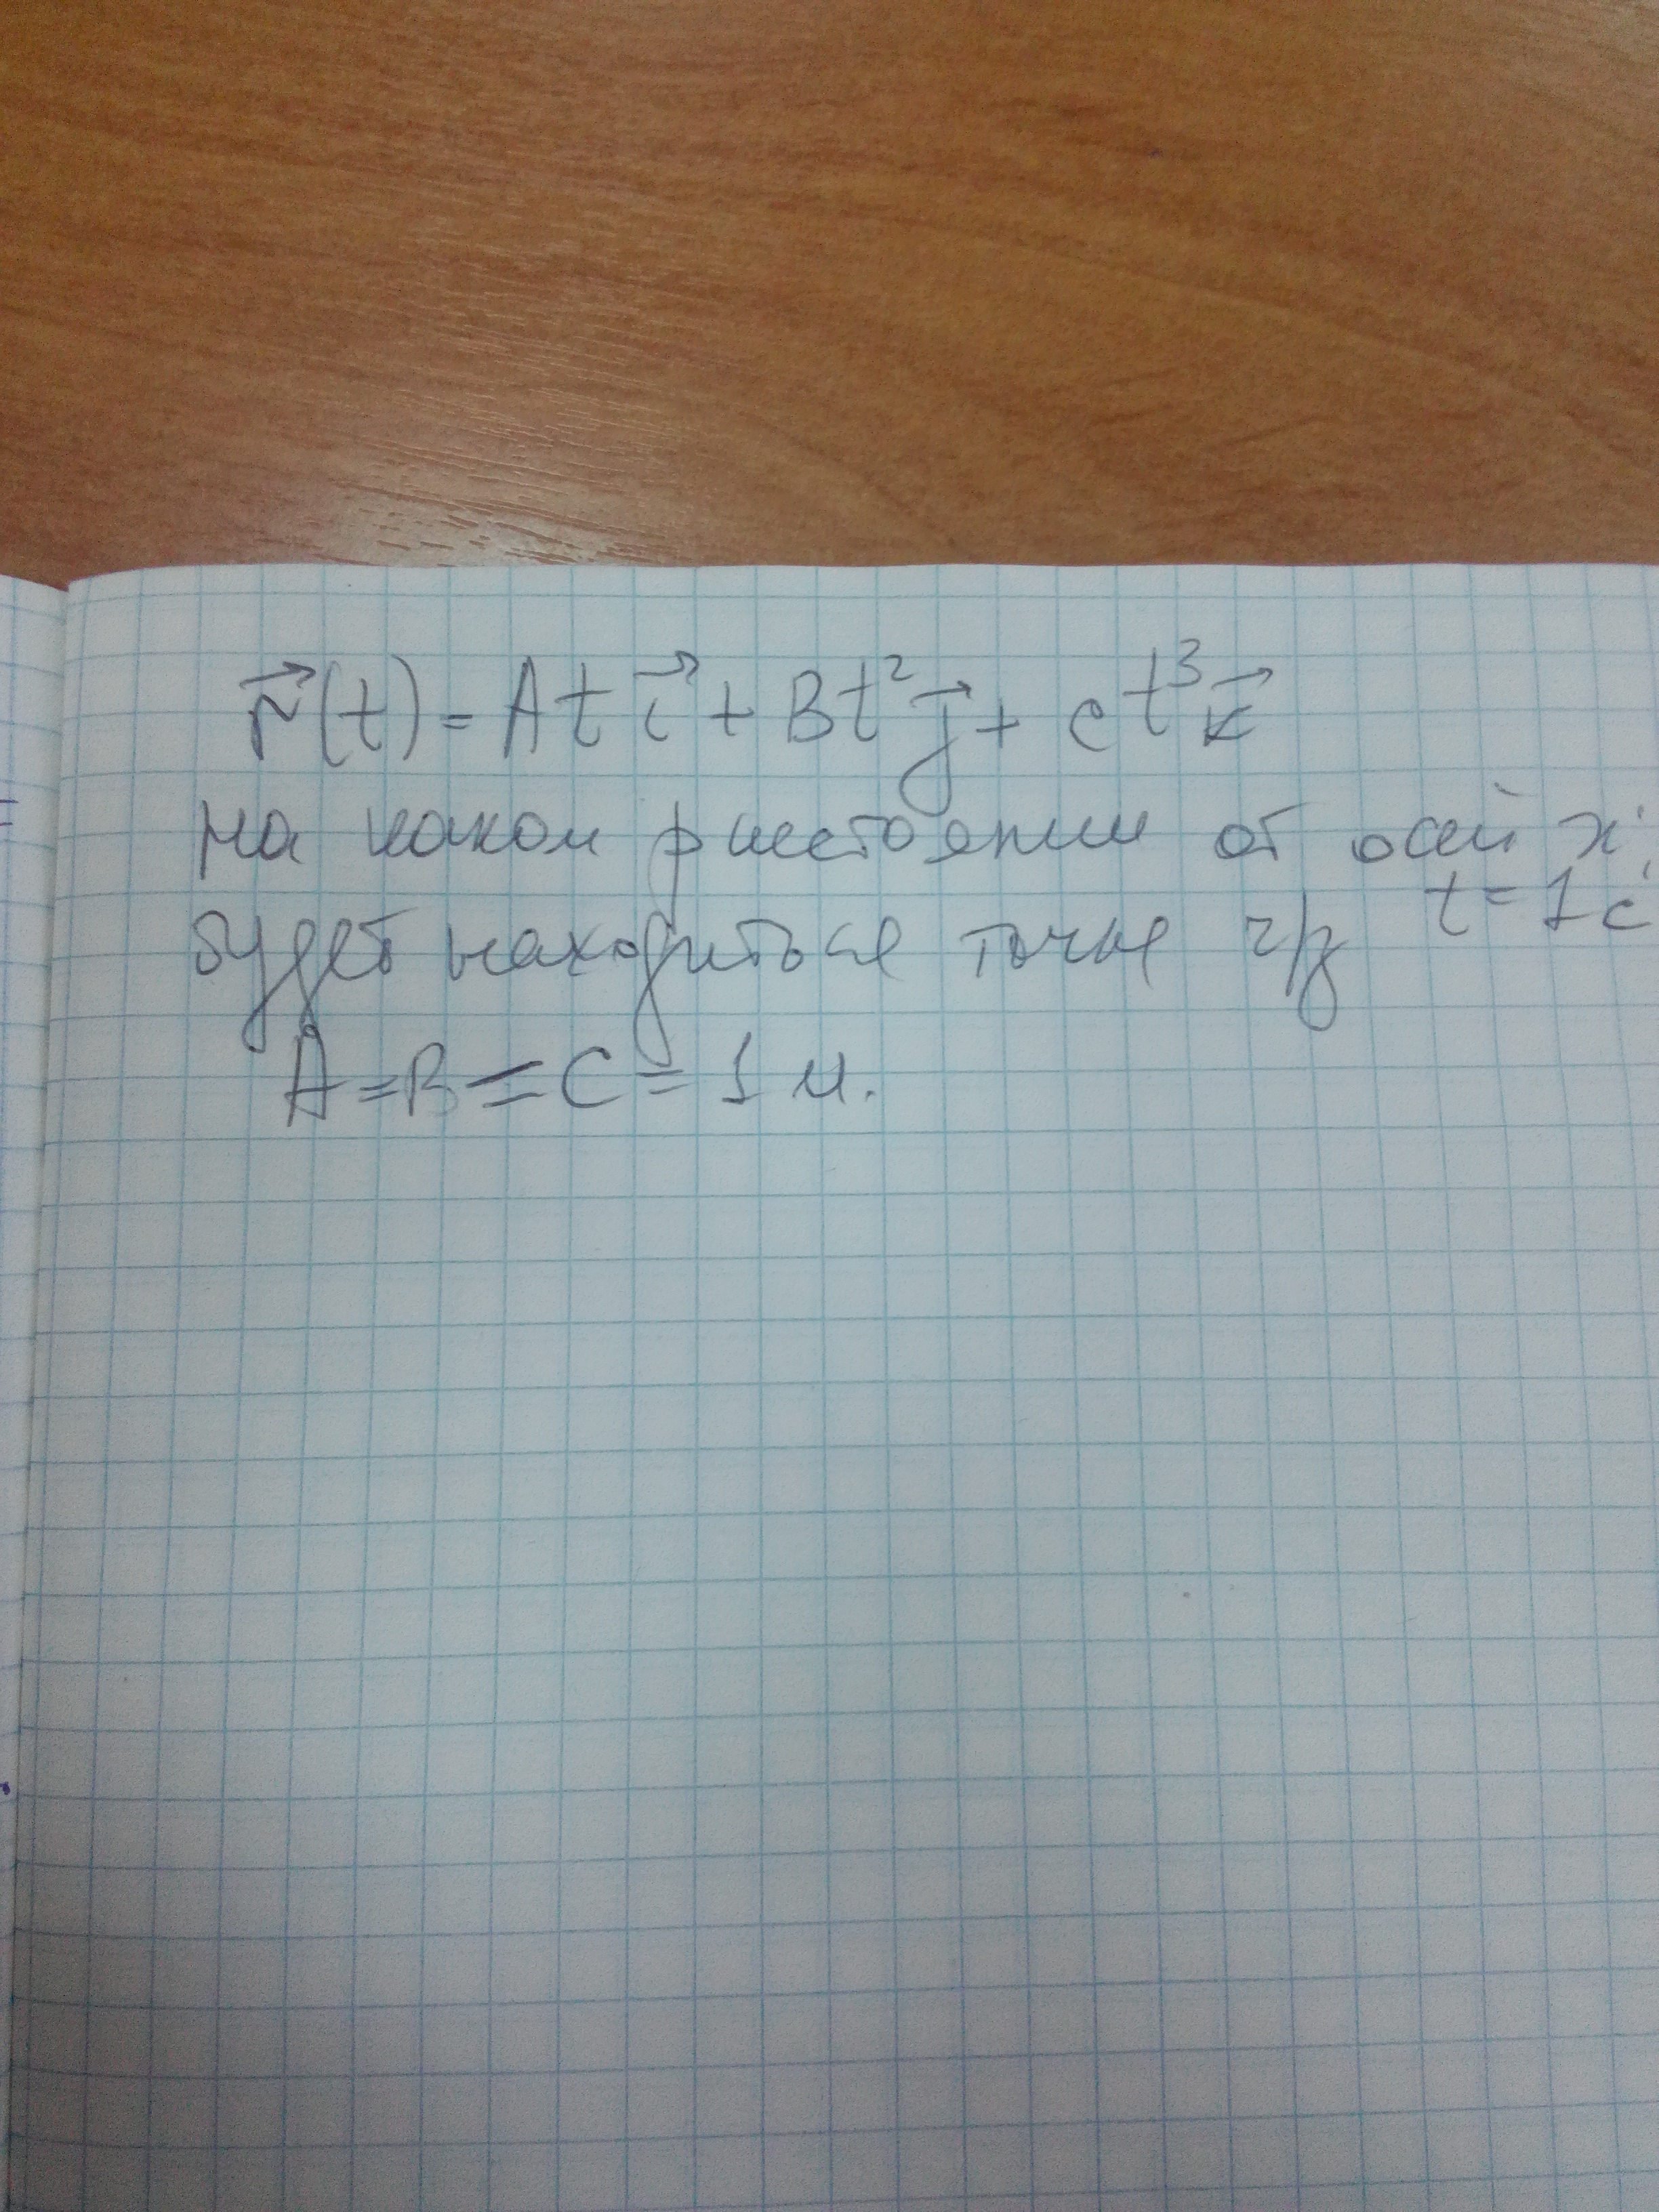 r⃗(t) = A t i⃗ + B t² j⃗ + C t³ k⃗
на каком расстоянии от осей x,
будет находиться точка ч/з t = 1 с
A = B = C = 1 м.